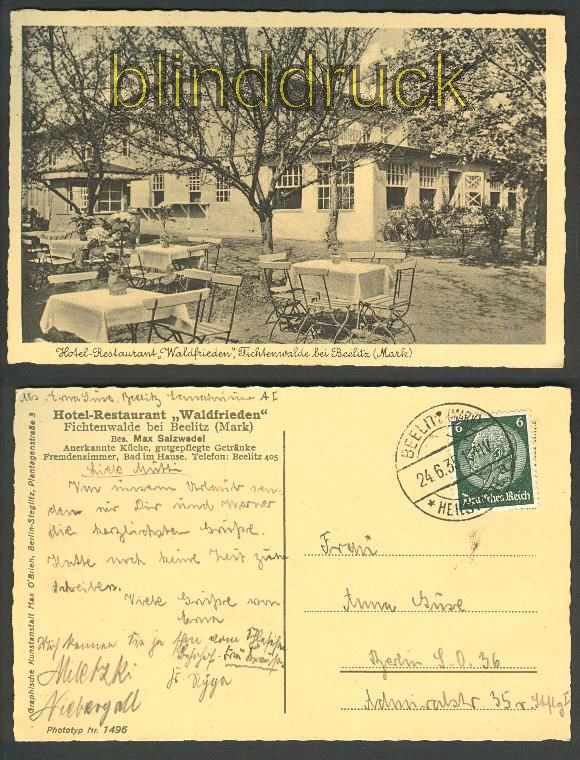 blinddruck
Hotel-Restaurant „Waldfrieden“, Fichtenwalde bei Beelitz (Mark)
Abs. Erna Güse. Beelitz A I
Hotel-Restaurant „Waldfrieden“
Fichtenwalde bei Beelitz (Mark)
Bes. Max Salzwedel
Anerkannte Küche, gutgepflegte Getränke
Fremdenzimmer, Bad im Hause. Telefon: Beelitz 405
Liebe Mutti
Von unserm Urlaub sen-
den wir Dir und
die herzlichsten Grüße.
Hatte noch keine Zeit zum
schreiben.
Viele Grüße von
Erna
kennen Sie ja vom
Bahnhof. Frau
Niebergall
Phototyp Nr. 1496
Graphische Kunstanstalt Max O'Brien, Berlin-Steglitz, Plantagenstraße 3
BEELITZ (MARK)
24.6.3
6 6
Deutsches Reich
Frau
Anna Güse
Berlin S.O. 36
Admiralstr 35 v.